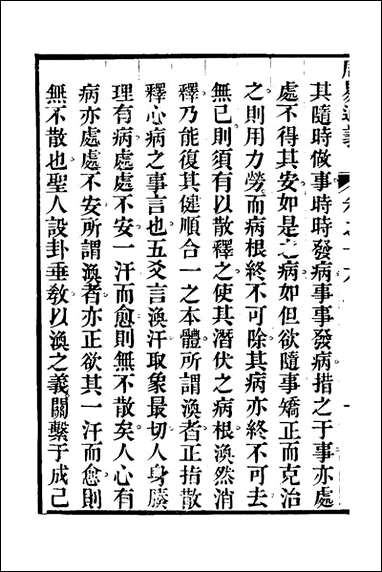 其隨時做事時時發病事事發病措之于事亦處
處不得其安如是之病如但欲隨事矯正而克治
之則用力勞而病根終不可除其病亦終不可去
無已則須有以散釋之使其潛伏之病根渙然消
釋乃能復其健順合一之本體所謂渙者正指散
釋心病之事言也五爻言渙汗取象最切人身腠
理有病處處不安一汗而愈則無不散矣人心有
病亦處處不安所謂渙者亦正欲其一汗而愈則
無不散也聖人設卦垂敎以渙之義關繫于成己